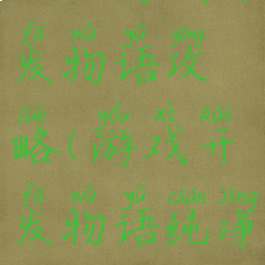 fā wù yǔ gōng
发物语攻
lüè yóu xì kāi
略(游戏开
fā wù yǔ chún jìng
发物语纯净